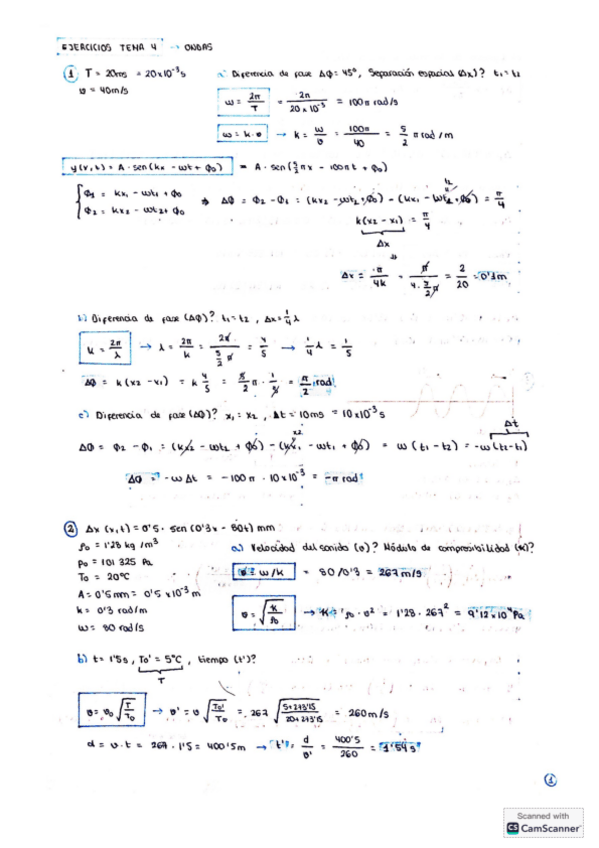 EJERCICIOS TEMA 4 → ONDAS
① T = 20ms = 20×10⁻³ s
v = 40m/s
a) Diferencia de fase Δφ = 45°, Separación espacial (Δx)? t₁ = t₂
ω = 2π/T = 2π/(20×10⁻³) = 100π rad/s
ω = k·v → k = ω/v = 100π/40 = 5/2 π rad/m
y(x,t) = A·sen(kx - ωt + φ₀) = A·sen(5/2 πx - 100πt + φ₀)
{φ₁ = kx₁ - ωt₁ + φ₀
φ₂ = kx₂ - ωt₂ + φ₀
⇒ Δφ = φ₂ - φ₁ = (kx₂ - ωt₂ + φ₀) - (kx₁ - ωt₁ + φ₀) = π/4
t₂
k(x₂ - x₁) = π/4
Δx
Δx = π/4k = π/(4·5/2 π) = 2/20 = 0'1m
b) Diferencia de fase (Δφ)? t₁ = t₂, Δx = 1/4 λ
k = 2π/λ → λ = 2π/k = 2π/(5/2 π) = 4/5 → 1/4 λ = 1/5
Δφ = k(x₂ - x₁) = k 4/5 = 5/2 π · 1/5 = π/2 rad
c) Diferencia de fase (Δφ)? x₁ = x₂, Δt = 10ms = 10×10⁻³ s
Δφ = φ₂ - φ₁ = (kx₂ - ωt₂ + φ₀) - (kx₁ - ωt₁ + φ₀) = ω(t₁ - t₂) = -ω(t₂ - t₁)
x₂
Δt
Δφ = -ωΔt = -100π · 10×10⁻³ = -π rad
② Δx (x,t) = 0'5 · sen (0'3x - 80t) mm
ρ₀ = 1'28 kg/m³
P₀ = 101 325 Pa
T₀ = 20°C
A = 0'5 mm = 0'5×10⁻³ m
k = 0'3 rad/m
ω = 80 rad/s
a) Velocidad del sonido (v)? Módulo de compresibilidad (K)?
v = ω/k = 80/0'3 = 267 m/s
v = √(K/ρ₀) → K = ρ₀ · v² = 1'28 · 267² = 9'12×10⁴ Pa
b) t = 1'5s, T₀' = 5°C, tiempo (t')?
T
v = v₀√(T/T₀) → v' = v√(T₀'/T₀) = 267 √((5+273'15)/(20+273'15)) = 260 m/s
d = v·t = 267 · 1'5 = 400'5m → t' = d/v' = 400'5/260 = 1'54s
①
Scanned with
CS CamScanner